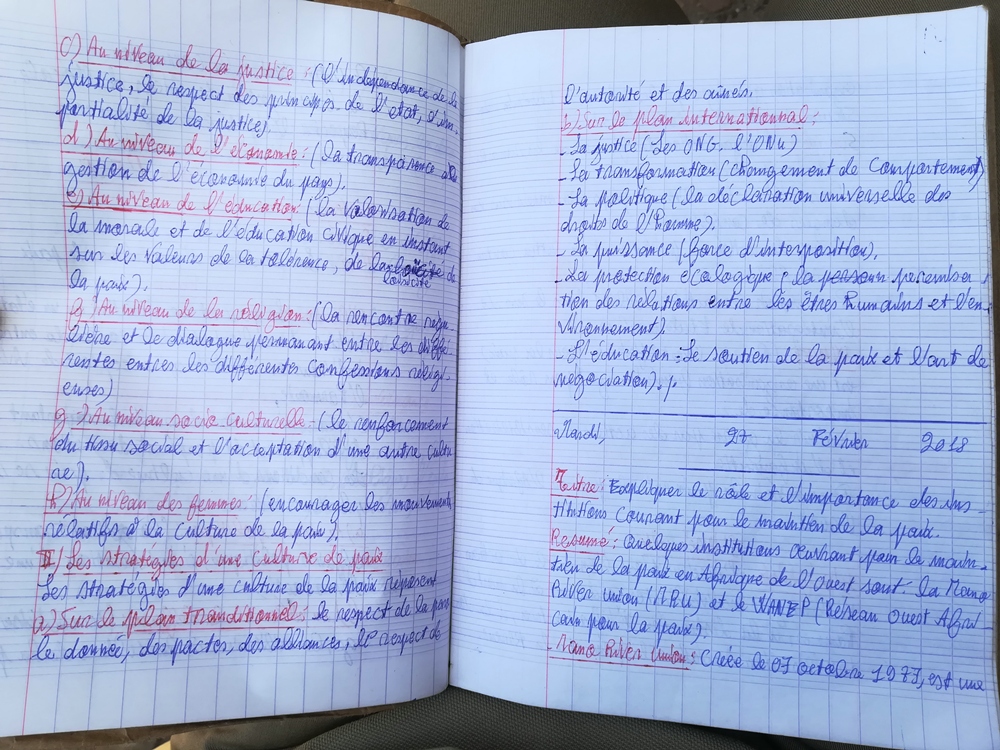 c) Au niveau de la justice : (l'indépendance de la
justice, le respect des principes de l'etat, d'im-
partialité de la justice).
d) Au niveau de l'économie : (la transparence de
gestion de l'économie du pays).
e) Au niveau de l'éducation : (la valorisation de
la morale et de l'éducation civique en instant
sur les valeurs de la tolérence, de la de
la paix).
f) Au niveau de la réligion : (la rencontre régu-
lière et le dialogue permanant entre les diffé
rentes entres les différentes confessions réligi-
euses)
g) Au niveau socio culturelle (le renforcement
du tissu social et l'acceptation d'une autre cultu
re).
h) Au niveau des femmes : (encourager les mouvements
rélatifs à la culture de la paix).
II) Les stratégies d'une culture de paix
Les stratégies d'une culture de la paix réposent
a) Sur le plan tranditionnel : le respect de la paro
le donnée, des pactes, des alliances, le respect de
l'autorité et des aînés.
b) Sur le plan internationnal :
- La justice (Les ONG, l'ONU)
- La transformation (changement de comportement)
- La politique (la déclaration universelle des
droits de l'homme).
- La puissance (force d'interposition).
- La protection écologique : la
tion des rélations entre les êtres humains et l'en-
vironnement).
- L'éducation : le soutien de la paix et l'art de
négociation).
Mardi, 27 Février 2018
Titre : Expliquer le rôle et l'importance des ins-
titutions pour le maintien de la paix.
Resumé : Quelques institutions œuvrant pour le main-
tien de la paix en Afrique de l'Ouest sont : la Mano
River Union (M.R.U) et le WANEP (Réseau Ouest Afri-
cain pour la paix).
Mano River Union : Créée le 07 octobre 1973, est une